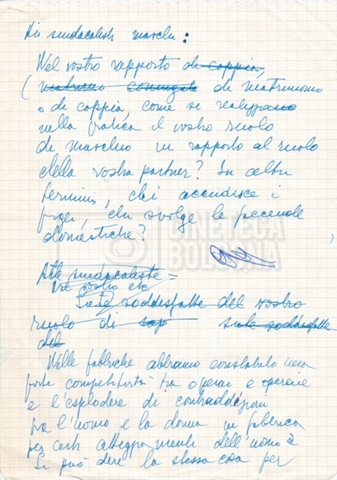 Ai sindacalisti maschi :
Nel vostro rapporto di coppia,
( matrimo coniugale di matrimonio
o di coppia, come si realizzano
nella pratica il vostro ruolo
di maschio in rapporto al ruolo
della vostra partner? In altri
termini, chi accudisce i
figli, chi svolge le faccende
domestiche?
CINETECA
BOLOGNA
Alle sindacaliste =
Siete soddisfatte del vostro
ruolo di siete soddisfatte
del
Nelle fabbriche abbiamo constatato una
forte competitività tra operai e operaie
e l'esplodere di contraddizioni
tra l'uomo e la donna in fabbrica
per certi atteggiamenti dell'uomo
Si può dire la stessa cosa per